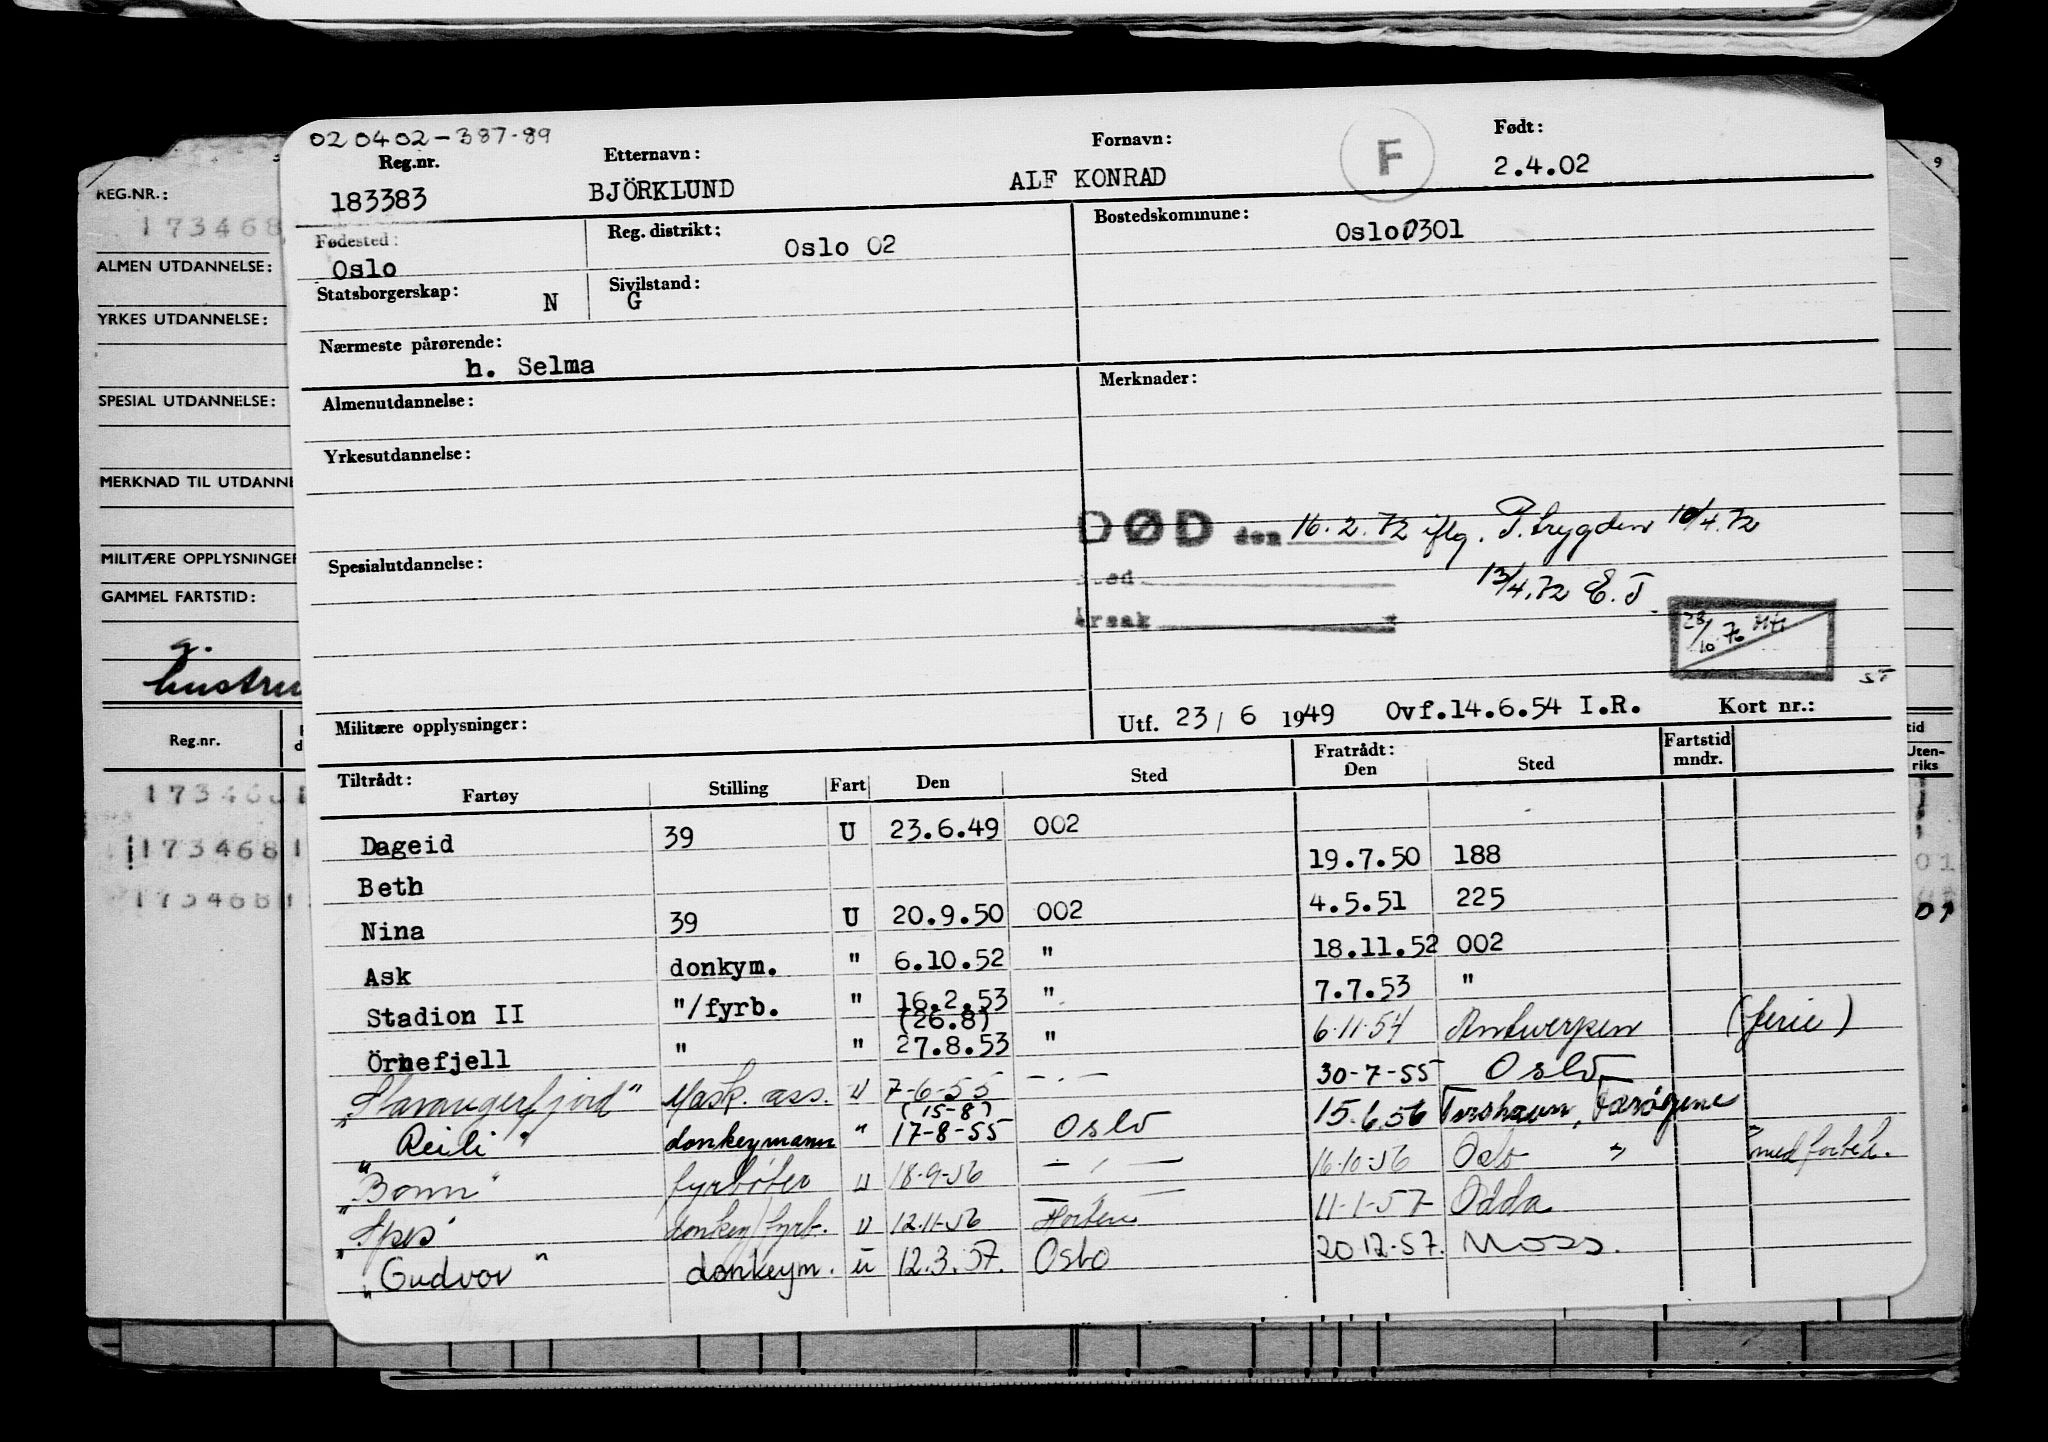 020402-387-89
Reg.nr. Etternavn: Fornavn: F Født:
183383 BJÖRKLUND ALF KONRAD 2.4.02
Fødested: Reg. distrikt: Bostedskommune:
Oslo Oslo 02 Oslo 0301
Statsborgerskap: N Sivilstand: G
Nærmeste pårørende:
h. Selma
Almenutdannelse: Merknader:
Yrkesutdannelse:
DØD den 16.2.72 iflg. P.trygden 10/4.72
Spesialutdannelse:
sted 13/4.72 E.T.
Årsak
23/10 76
ST
Militære opplysninger: Utf. 23/6 1949 Ovf.14.6.54 I.R. Kort nr.:
Tiltrådt: Fratrådt: Fartstid
Fartøy Stilling Fart Den Sted Den Sted mndr.
Dageid 39 U 23.6.49 002
Beth 19.7.50 188
Nina 39 U 20.9.50 002 4.5.51 225
Ask donkym. " 6.10.52 " 18.11.52 002
Stadion II "/fyrb. " 16.2.53 " 7.7.53 "
(26.8)
Örnefjell " " 27.8.53 " 6-11-54 Antwerpen (ferie)
"Stavangerfjord" Mask. ass. u 7-6-55 -.- 30-7-55 Oslo
(15-8)
"Reili" donkeymann " 17-8-55 Oslo 15.6.56 Torshavn, Færøyene
"Bonn" fyrbøter u 18-9-56 — , — 16-10-56 Oslo " med forbeh.
"Spes" donkey/fyrb. u 12.11-56 Horten 11-1-57 Odda
"Gudvor" donkeym. u 12.3.57. Oslo 20.12-57. Moss.
REG.NR.:
173468
ALMEN UTDANNELSE:
YRKES UTDANNELSE:
SPESIAL UTDANNELSE:
MERKNAD TIL UTDANNE
MILITÆRE OPPLYSNINGER
GAMMEL FARTSTID:
g.
hustru
Reg.nr.
173468
173468 1
173468 1
9
tid
Uten-
riks
01